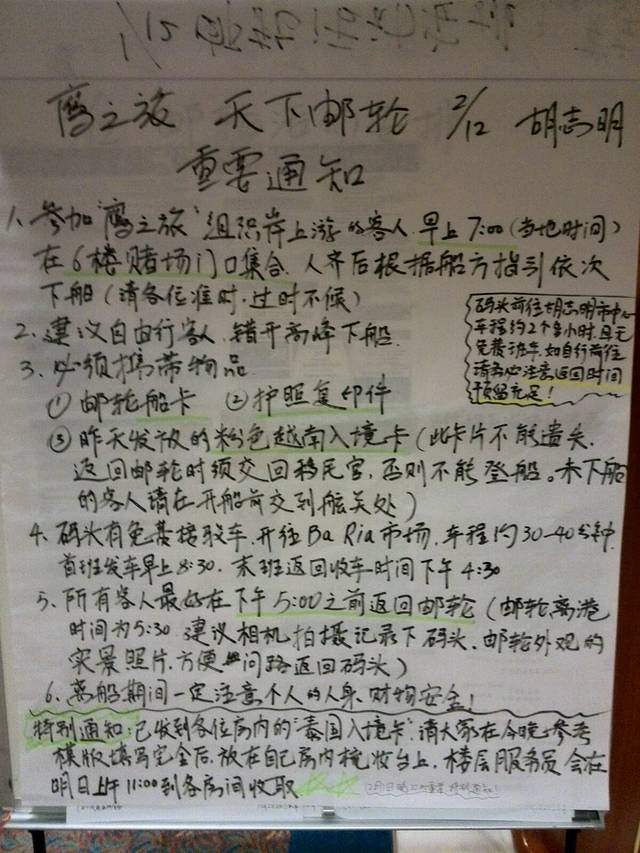 鹰之旅 天下邮轮 2/12 胡志明
重要通知
1、参加“鹰之旅”组织岸上游的客人,早上7:00(当地时间)
在6楼赌场门口集合,人齐后根据船方指引依次
下船(请各位准时,过时不候)
2、建议自由行客人,错开高峰下船.
3、必须携带物品
① 邮轮船卡 ② 护照复印件
③ 昨天发放的粉色越南入境卡(此卡片不能遗失,
返回邮轮时须交回移民官,否则不能登船。未下船
的客人请在开船前交到船关处)
码头前往胡志明市中心
车程约2个多小时,且无
免费班车,如自行前往
请务必注意返回时间
预留充足!
4、码头有免费接驳车,开往Ba Ria市场,车程约30-40分钟.
首班发车早上8:30,末班返回收车时间下午4:30
5、所有客人最好在下午5:00之前返回邮轮(邮轮离港
时间为5:30.建议相机拍摄记录下码头、邮轮外观的
实景照片,方便问路返回码头)
6、离船期间一定注意个人的人身、财物安全!
特别通知:已收到各位房内的“泰国入境卡”,请大家在今晚参考
模版填写完全后,放在自己房内梳妆台上,楼层服务员会在
明日上午11:00到各房间收取.